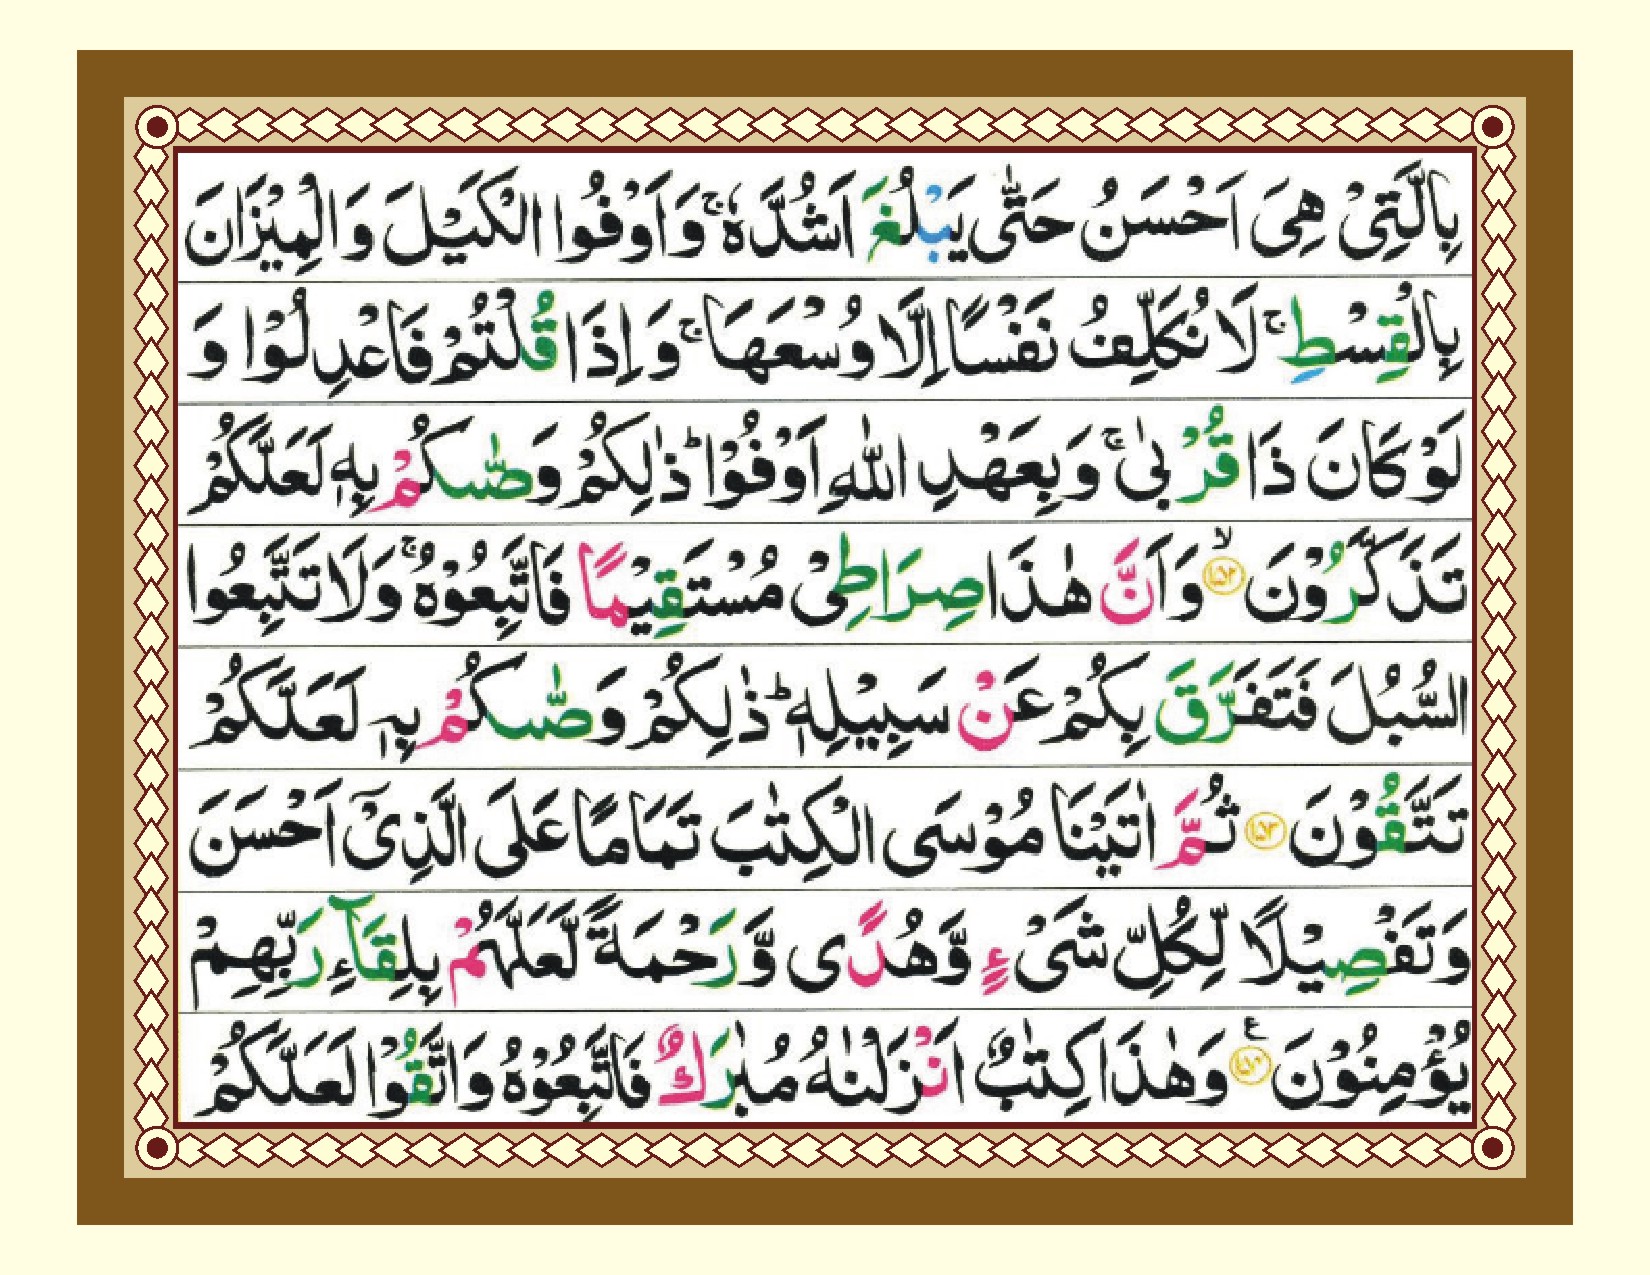 بِالَّتِیْ هِیَ اَحْسَنُ حَتّٰی یَبْلُغَ اَشُدَّهٗ ۚ وَاَوْفُوا الْكَیْلَ وَالْمِیْزَانَ
بِالْقِسْطِ ۚ لَا نُكَلِّفُ نَفْسًا اِلَّا وُسْعَهَا ۚ وَاِذَا قُلْتُمْ فَاعْدِلُوْا وَ
لَوْ كَانَ ذَا قُرْبٰی ۚ وَبِعَهْدِ اللّٰهِ اَوْفُوْا ؕ ذٰلِكُمْ وَصّٰىكُمْ بِهٖ لَعَلَّكُمْ
تَذَكَّرُوْنَ ﴿۱۵۲﴾ ۙ وَاَنَّ هٰذَا صِرَاطِیْ مُسْتَقِیْمًا فَاتَّبِعُوْهُ ۚ وَلَا تَتَّبِعُوا
السُّبُلَ فَتَفَرَّقَ بِكُمْ عَنْ سَبِیْلِهٖ ؕ ذٰلِكُمْ وَصّٰىكُمْ بِهٖ لَعَلَّكُمْ
تَتَّقُوْنَ ﴿۱۵۳﴾ ثُمَّ اٰتَیْنَا مُوْسَی الْكِتٰبَ تَمَامًا عَلَی الَّذِیْۤ اَحْسَنَ
وَتَفْصِیْلًا لِّكُلِّ شَیْءٍ وَّهُدًی وَّرَحْمَةً لَّعَلَّهُمْ بِلِقَآءِ رَبِّهِمْ
یُؤْمِنُوْنَ ﴿۱۵۴﴾ ع وَهٰذَا كِتٰبٌ اَنْزَلْنٰهُ مُبٰرَكٌ فَاتَّبِعُوْهُ وَاتَّقُوْا لَعَلَّكُمْ